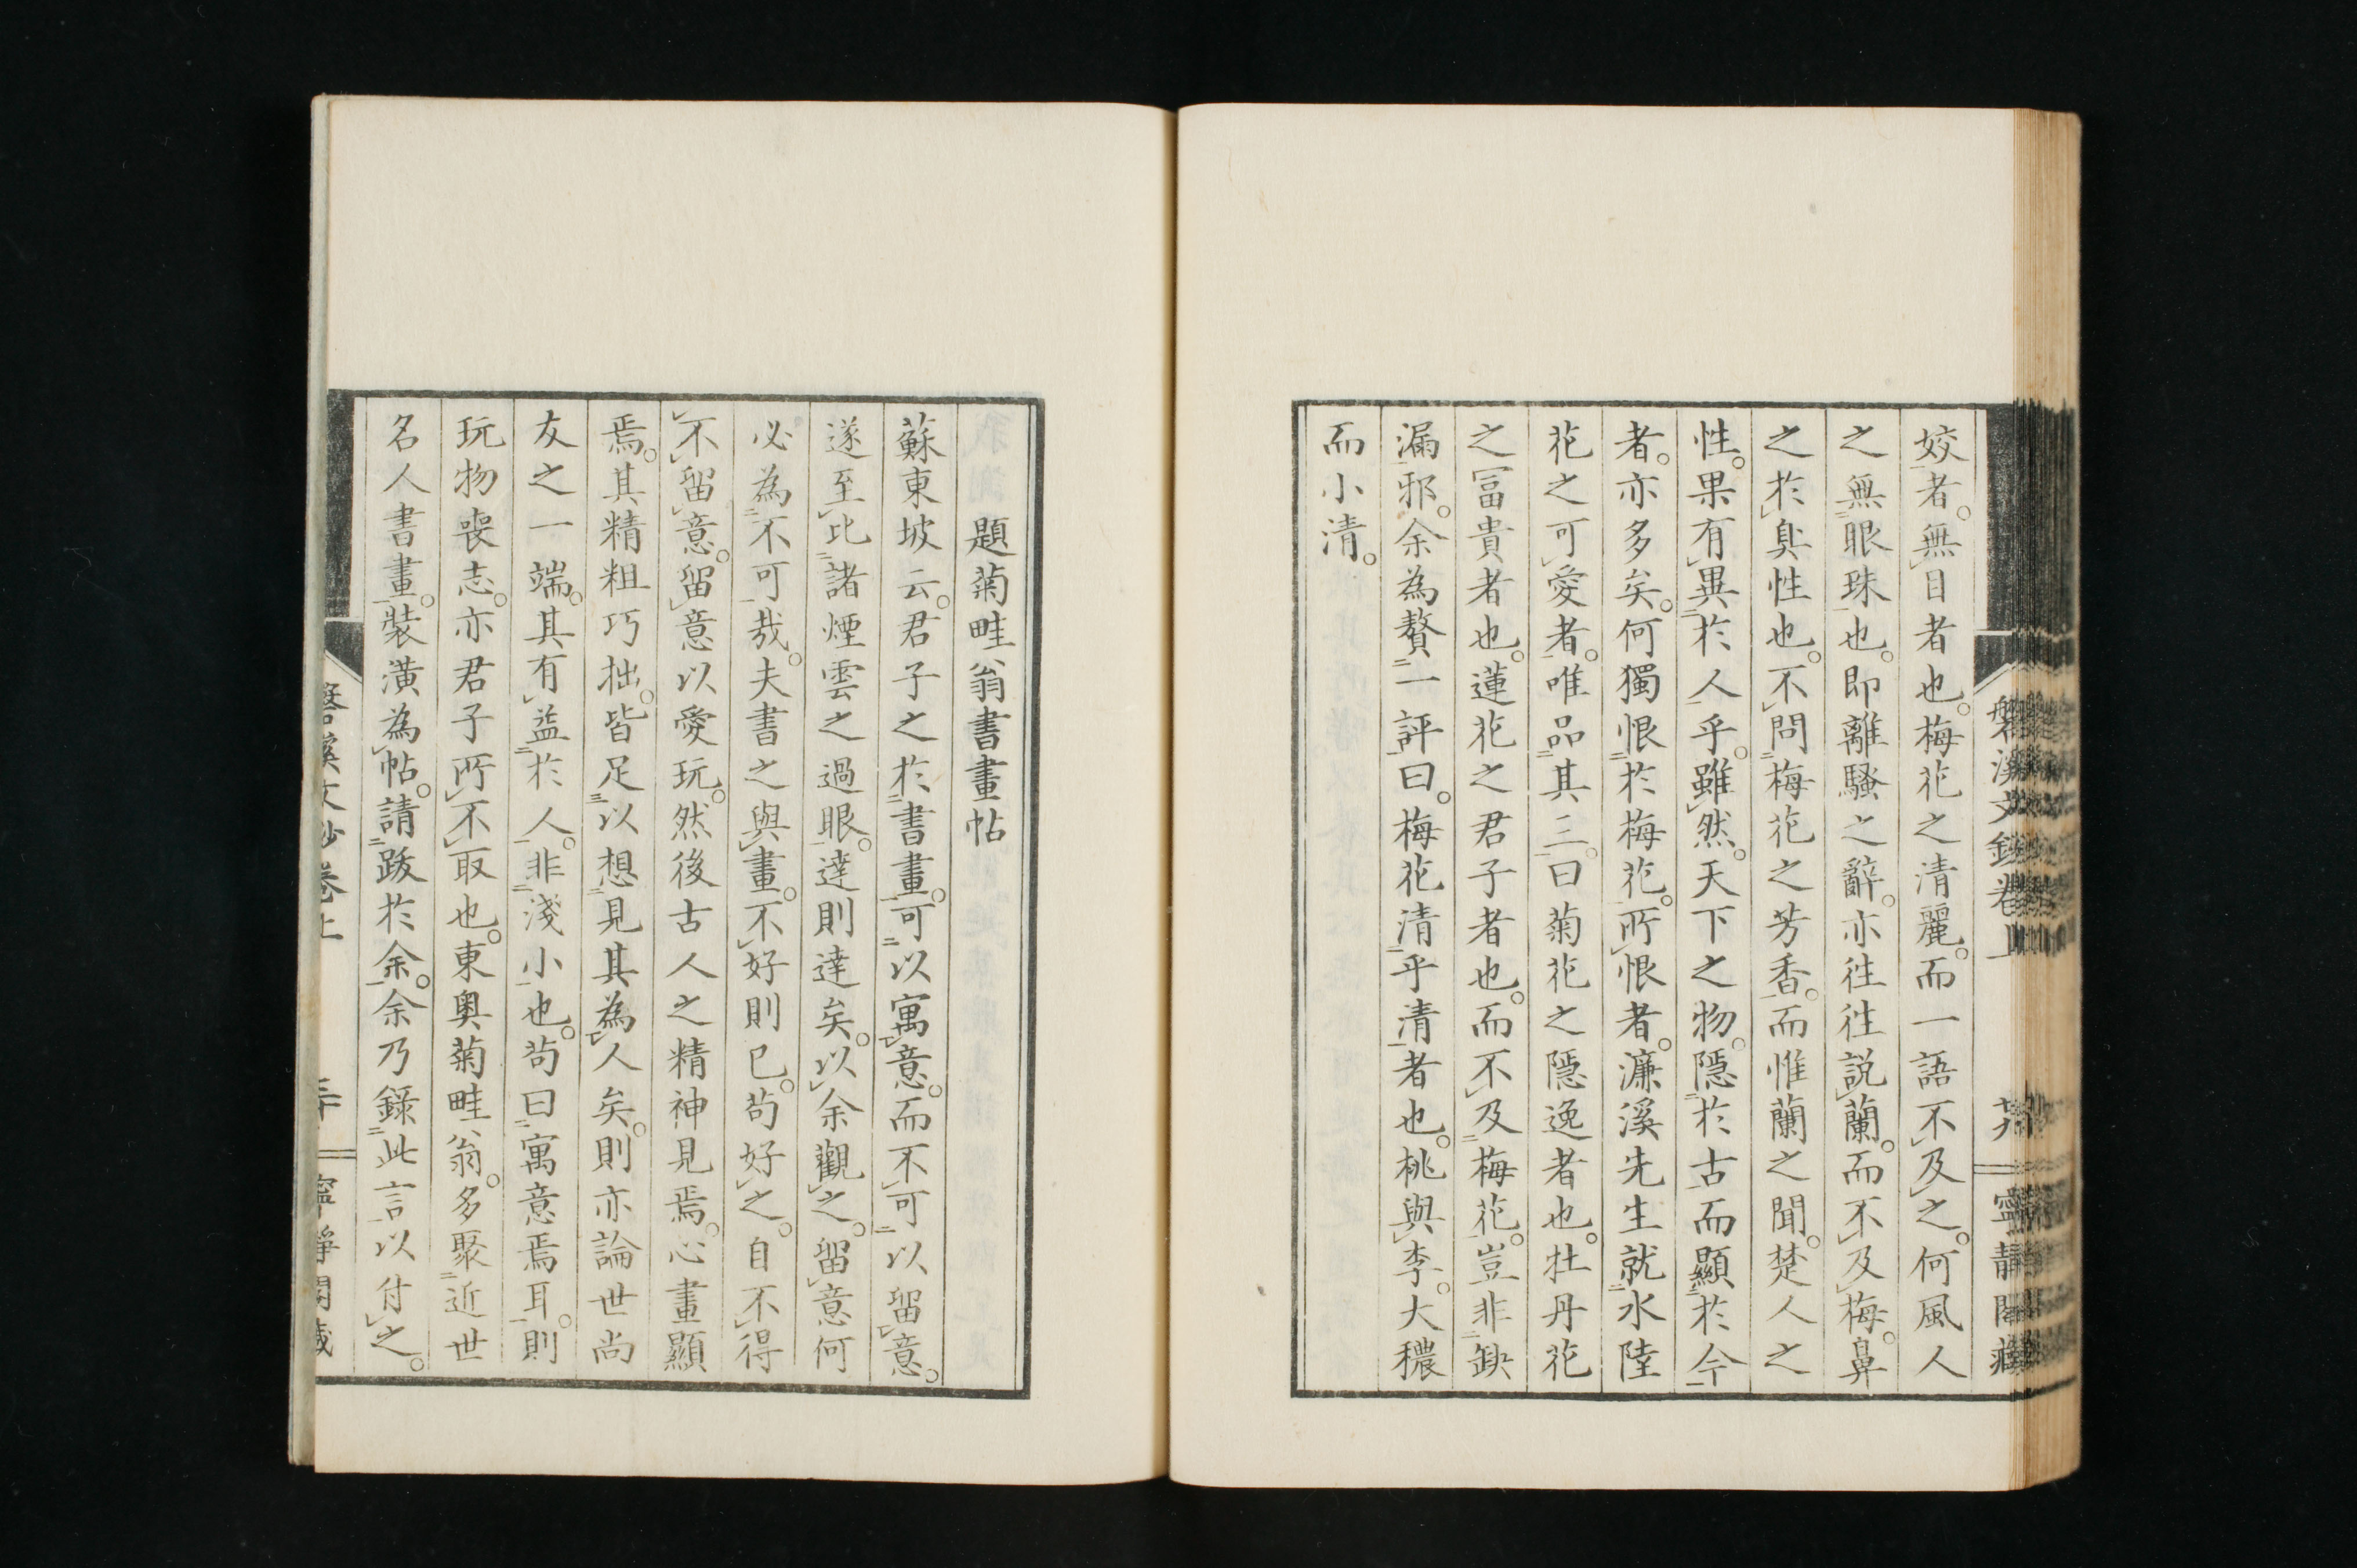 姣者。無目者也。梅花之清麗。而一語不及之。何風人
之無眼珠也。即離騷之辭。亦往往説蘭。而不及梅。鼻
之於臭性也。不問梅花之芳香。而惟蘭之聞。楚人之
性。果有異於人乎。雖然。天下之物。隱於古而顯於今
者。亦多矣。何獨恨於梅花。所恨者。濂溪先生就水陸
花之可愛者。唯品其三。曰菊花之隱逸者也。牡丹花
之冨貴者也。蓮花之君子者也。而不及梅花。豈非缺
漏邪。余為贅一評曰。梅花清乎清者也。桃與李。大穠
而小清。
磐溪文鈔卷上 廿九 寧靜閣藏
題菊畦翁書畫帖
蘇東坡云。君子之於書畫。可以寓意。而不可以留意。
遂至比諸煙雲之過眼。達則達矣。以余觀之。留意何
必為不可哉。夫書之與畫。不好則已。苟好之。自不得
不留意。留意以愛玩。然後古人之精神見焉。心畫顯
焉。其精粗巧拙。皆足以想見其為人矣。則亦論世尚
友之一端。其有益於人。非淺小也。苟曰寓意焉耳。則
玩物喪志。亦君子所不取也。東奧菊畦翁。多聚近世
名人書畫。裝潢為帖。請跋於余。余乃錄此言以付之。
磐溪文鈔卷上 三十 寧靜閣藏